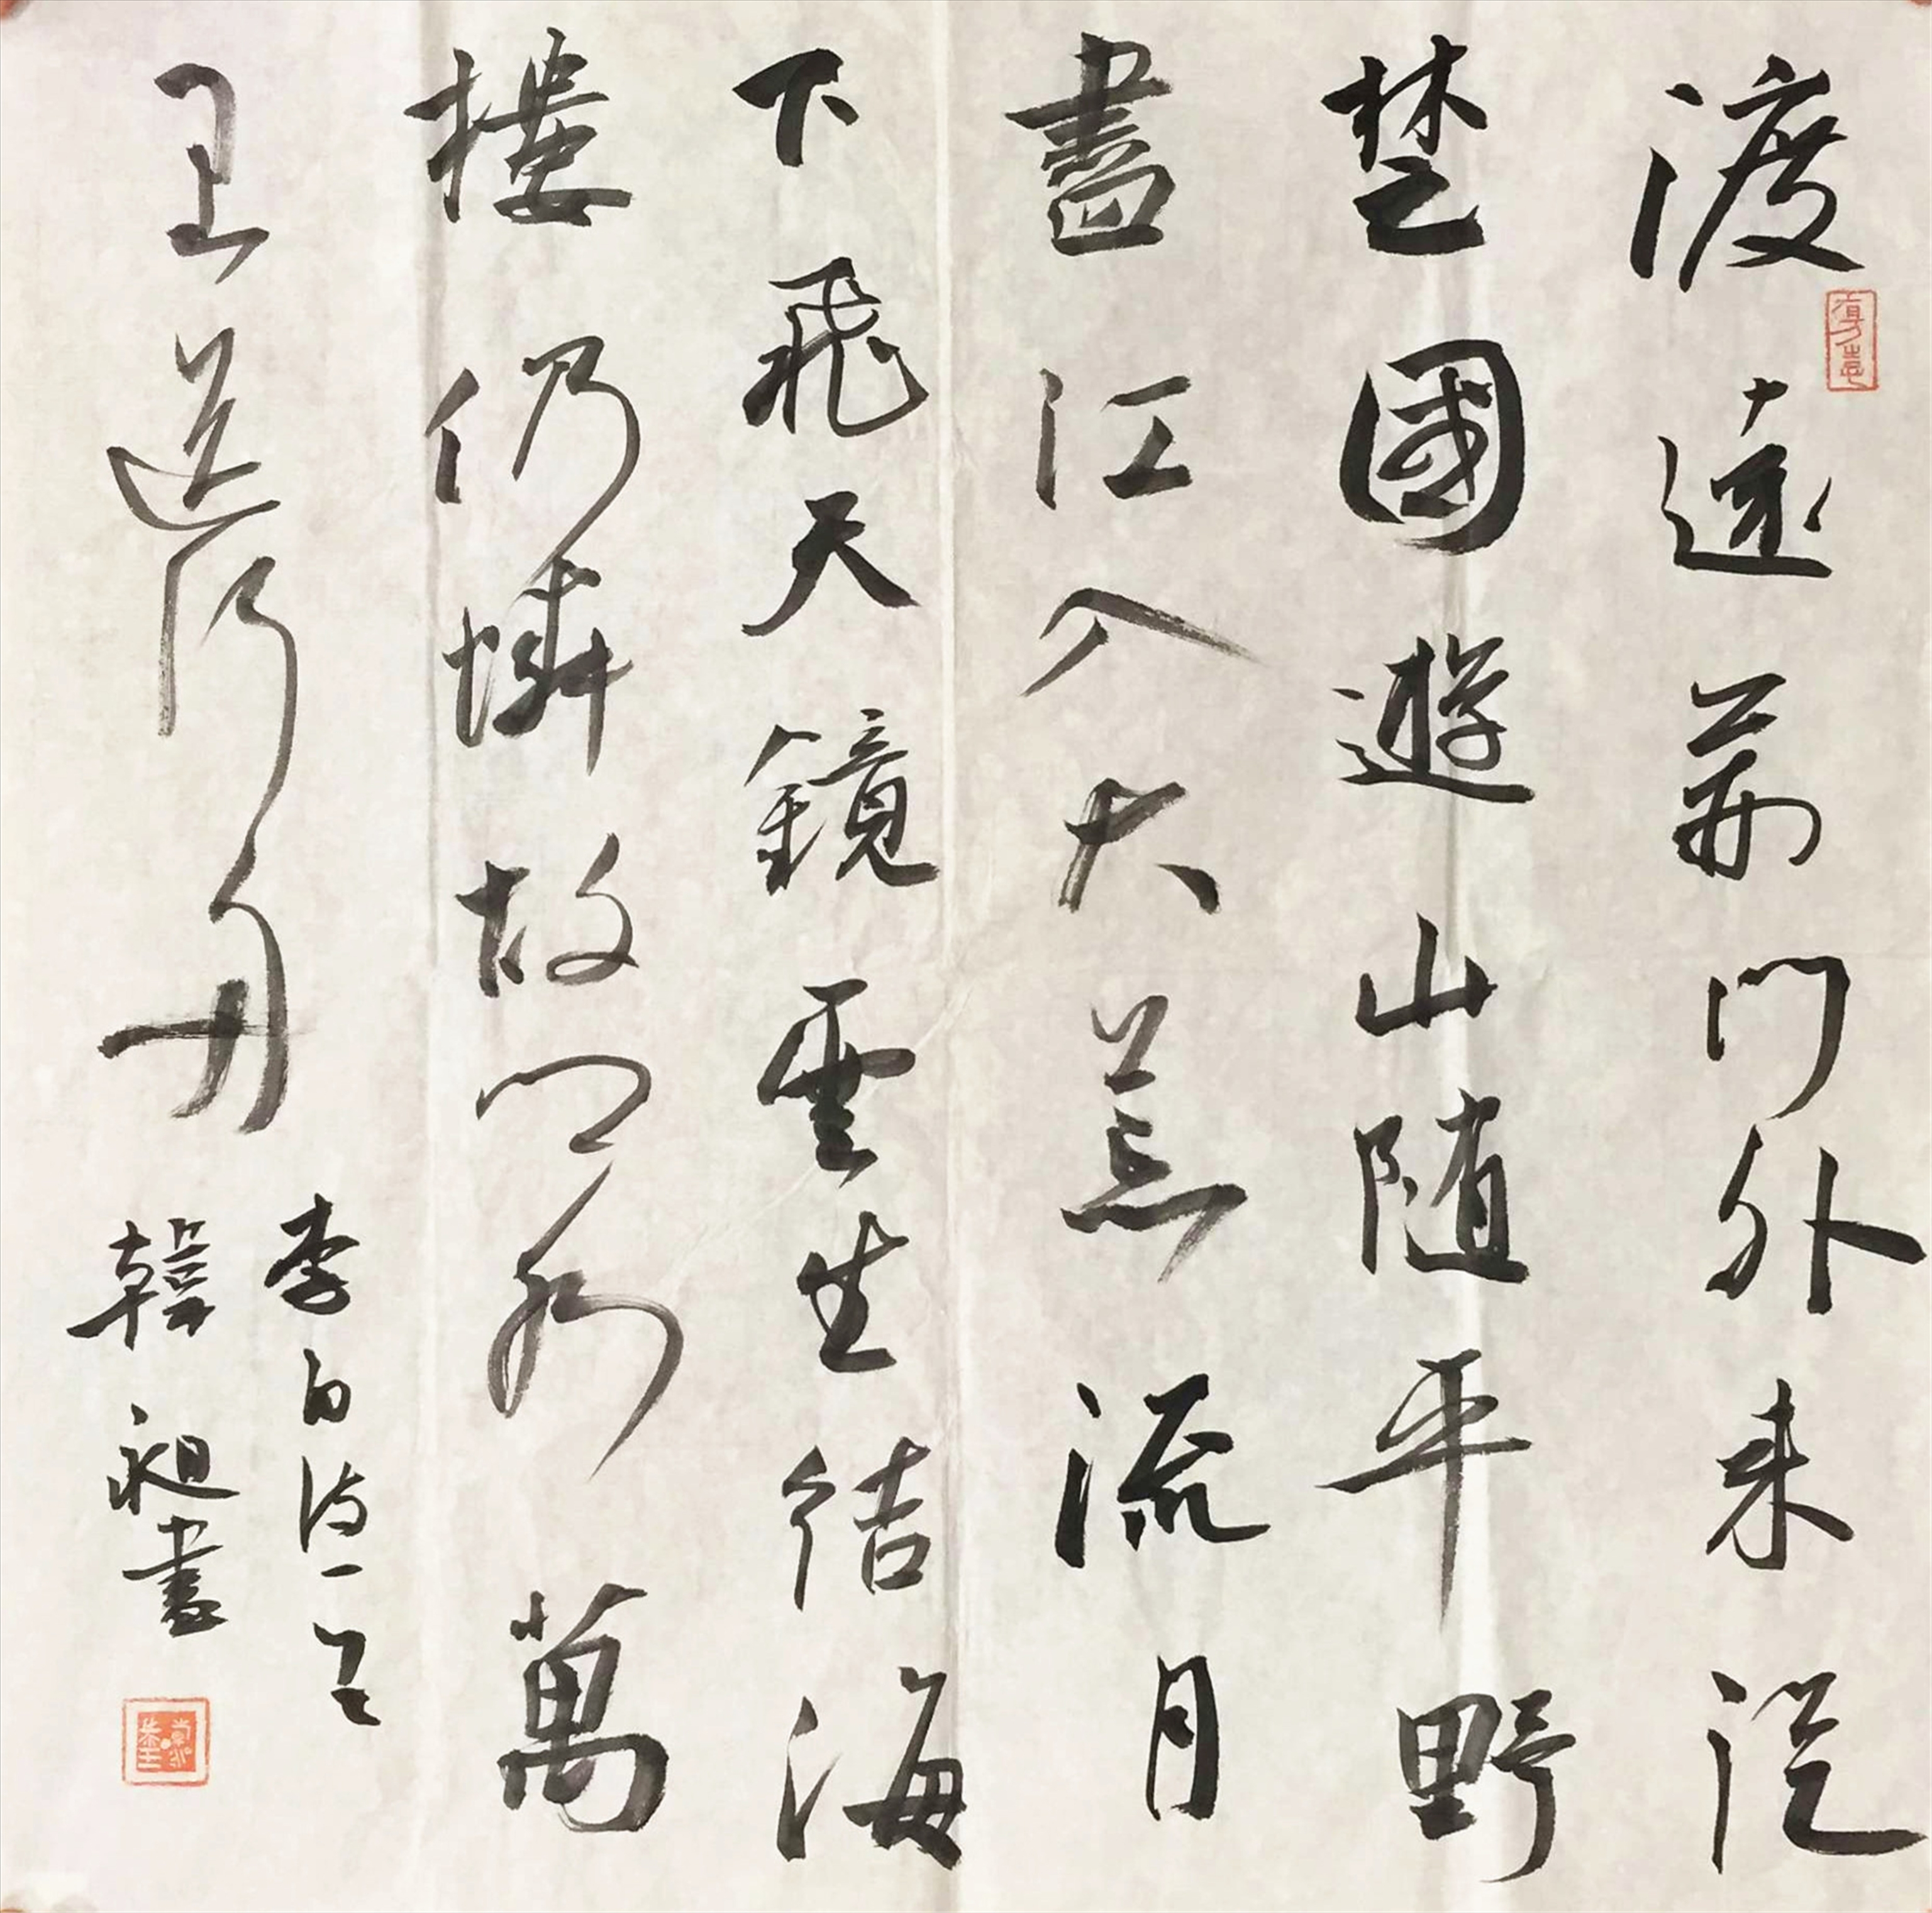 渡遠荊門外来從
楚國遊山随平野
盡江入大荒流月
下飛天鏡雲生結海
樓仍憐故鄉水萬
里送行舟
李白詩一首
韓昶書